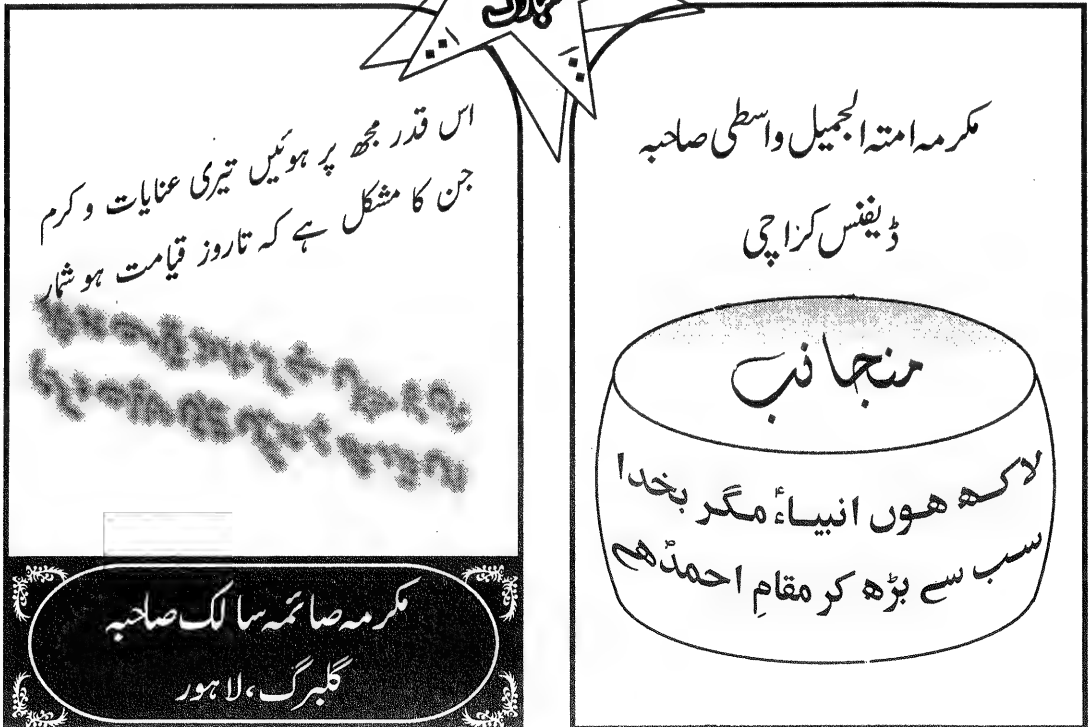 مبارک
مکرمہ امتہ الجمیل واسطی صاحبہ
ڈیفنس کراچی
منجانب
لاکھ ھوں انبیاءؑ مگر بخدا
سب سے بڑھ کر مقامِ احمدؐ ھے
اس قدر مجھ پر ہوئیں تیری عنایات و کرم
جن کا مشکل ہے کہ تا روز قیامت ہو شمار
مکرمہ صائمہ سالک صاحبہ
گلبرگ، لاہور